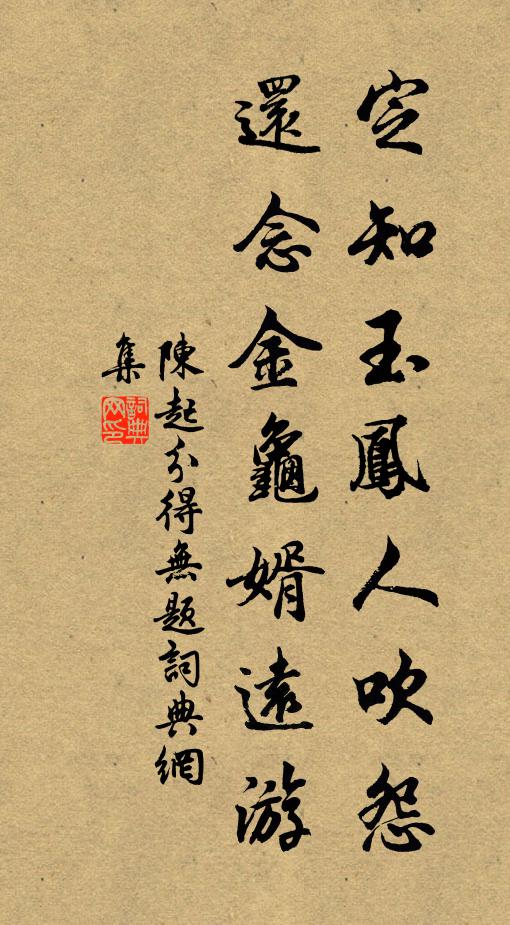 定知玉鳳人吹怨
還念金龜婿遠游
陳起分得無題詞典網
集
詞典
网印